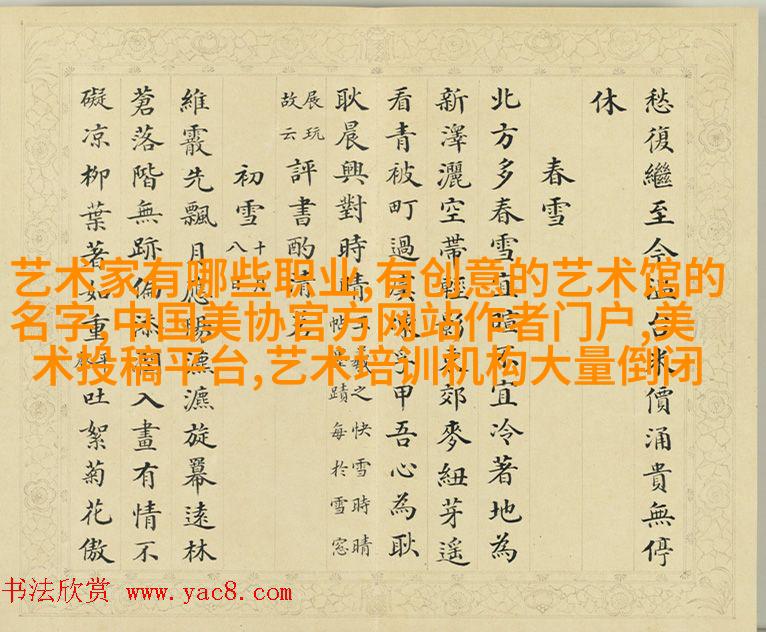 愁復繼至今温台米價涌貴無停
休
春雪
北方多春雪宜不宜冷著地為
新澤灑空帶輕来郊麥紐芽遥
看青被町過孚甲吾心為耿
耿晨興對時晴羲之快雪時晴
帖蹟每於雪窓
展玩
故云
評書酌清
初雪十月
八日
維霰先飄月應陽瀌瀌旋冪遠林
蒼落階無跡偏添入畫有情不
礙凉柳葉著如重吐絮菊花傲
艺术家有哪些职业,有创意的艺术馆的
名字,中国美协官方网站作者门户,美
术投稿平台,艺术培训机构大量倒闭
书法欣赏 www.yac8.com